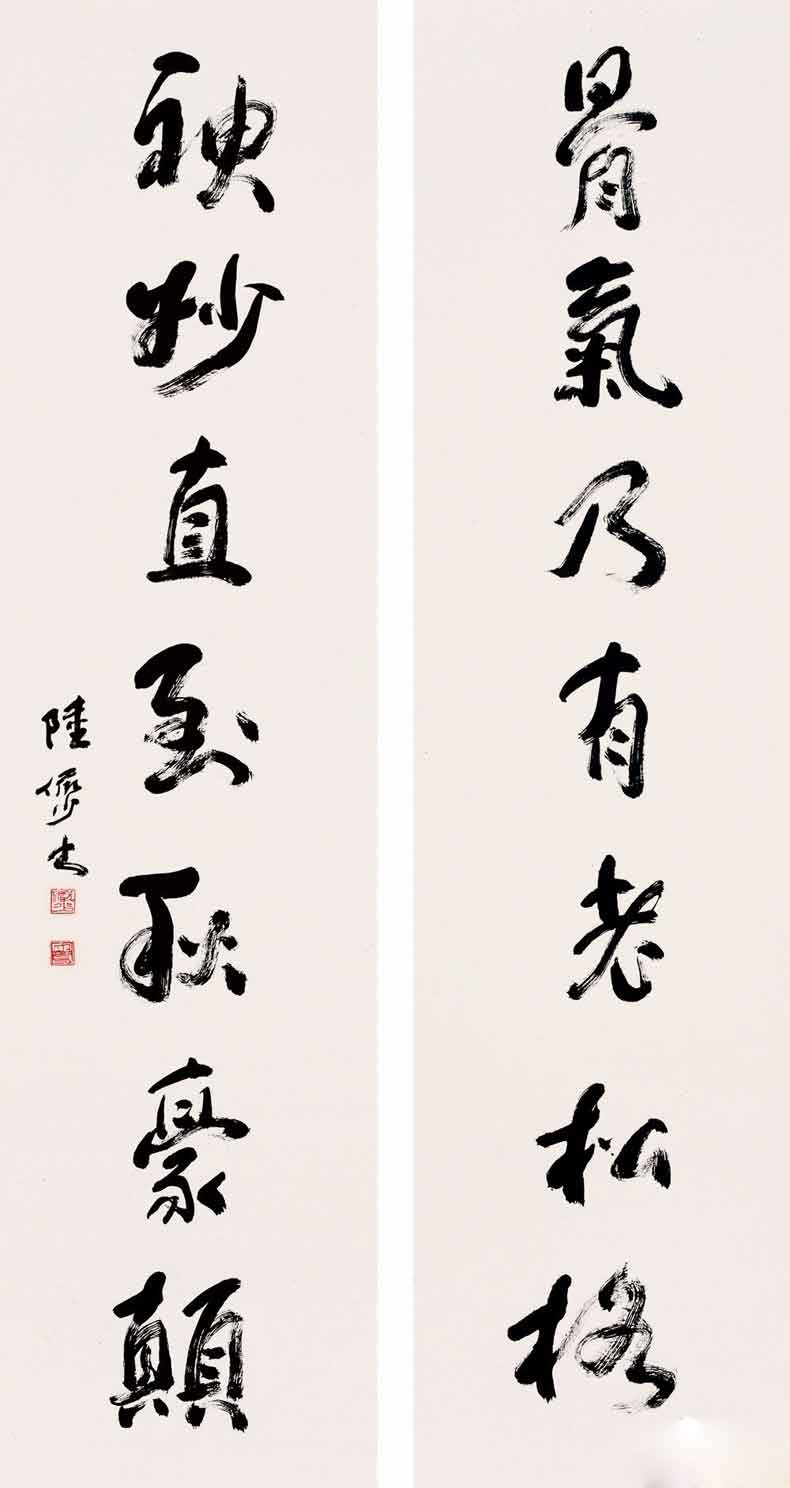 骨氣乃有老松格
神妙直到秋豪顛
陸儼少